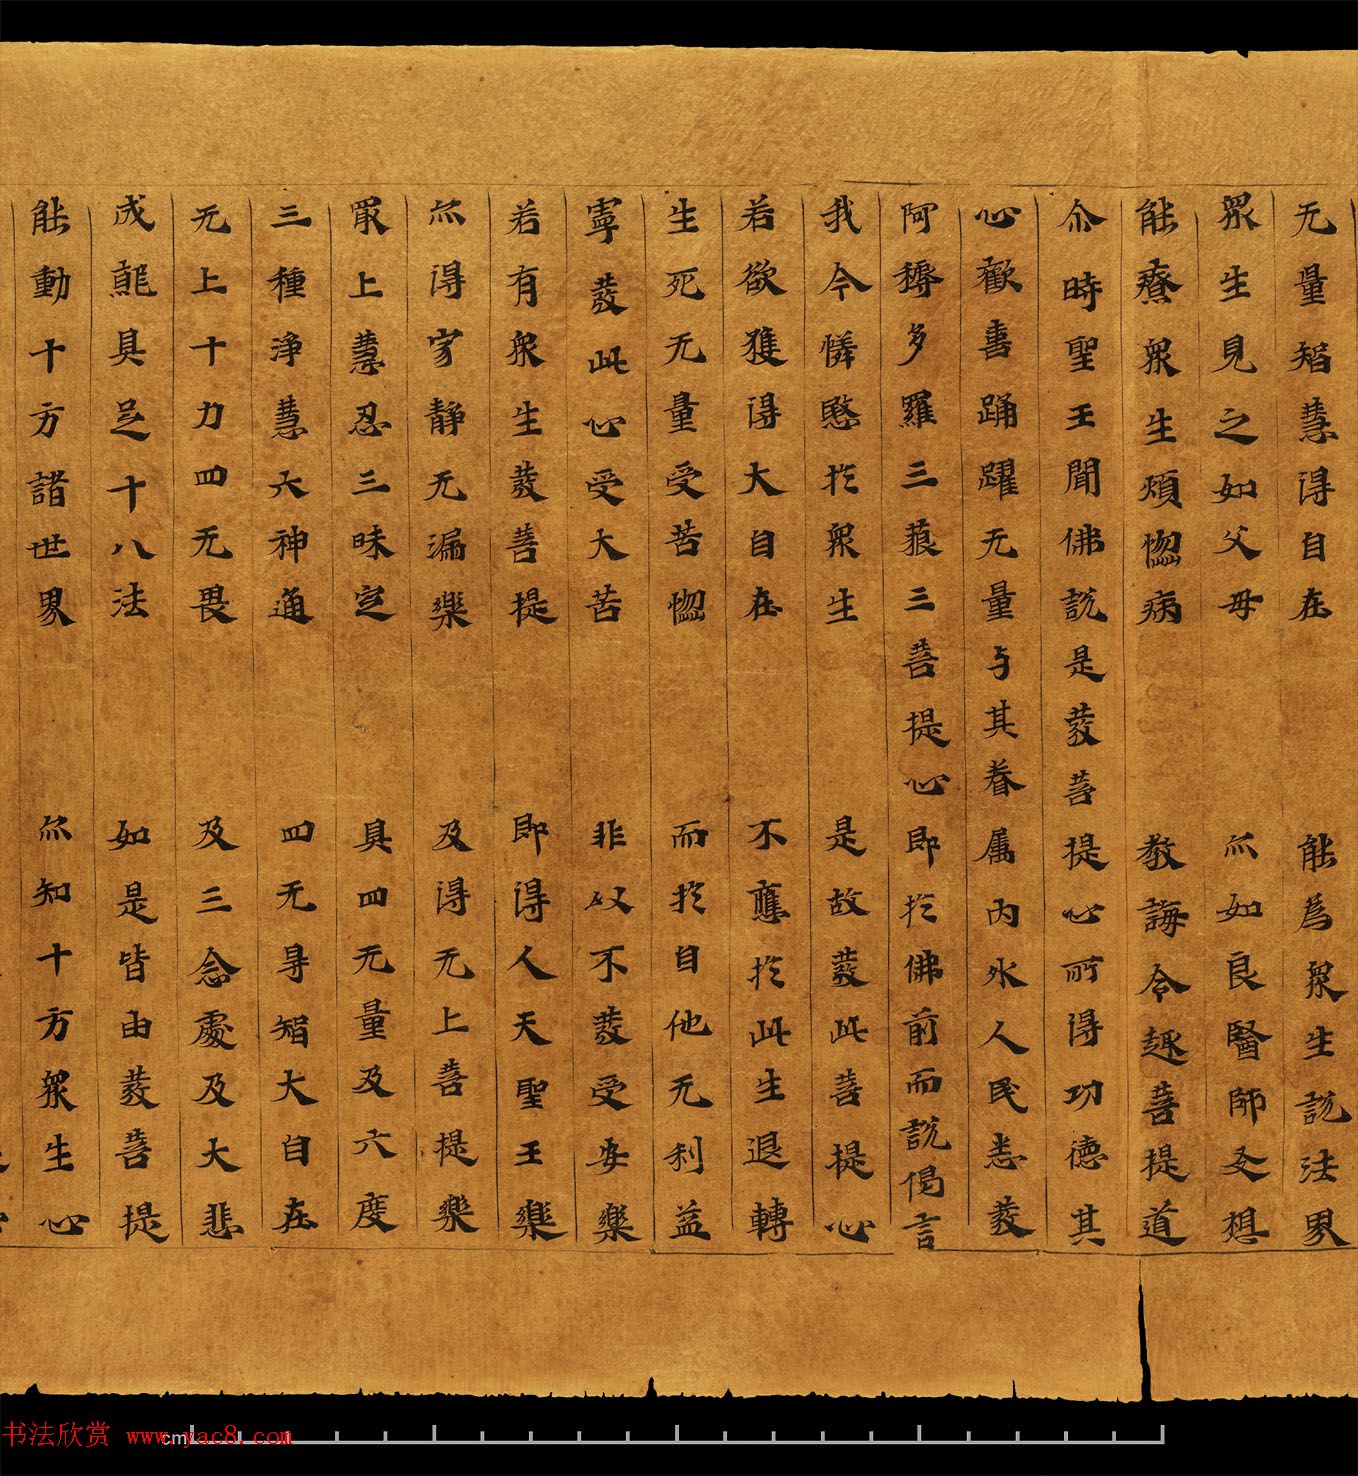 无量智慧得自在　能為衆生說法界
衆生見之如父母　亦如良醫師父想
能療衆生煩惱病　教誨令趣菩提道
尒時聖王聞佛說是發菩提心所得功德其
心歡喜踊躍无量与其眷属內外人民悉發
阿耨多羅三藐三菩提心即於佛前而說偈言
我今憐愍於衆生　是故發此菩提心
若欲獲得大自在　不應於此生退轉
生死无量受苦惱　而於自他无利益
寧發此心受大苦　非以不發受安樂
若有衆生發菩提　即得人天聖王樂
亦得寂靜无漏樂　及得无上菩提樂
冣上慧忍三昧定　具四无量及六度
三種淨慧六神通　四无导智大自在
无上十力四无畏　及三念處及大悲
成就具足十八法　如是皆由發菩提
能動十方諸世界　亦知十方衆生心
书法欣赏 www.yac8.com
cm